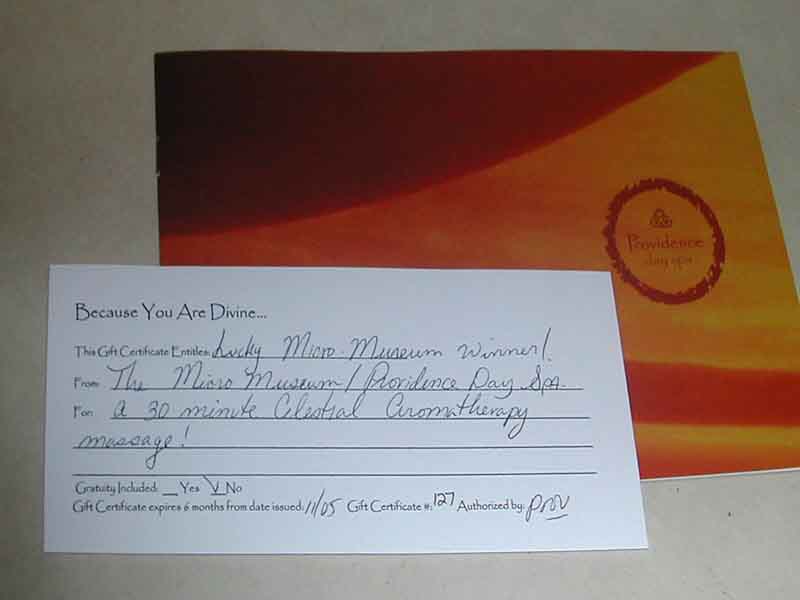 Providence
day spa
Because You Are Divine...
This Gift Certificate Entitles: Lucky Micro-Museum Winner!
From: The Micro Museum/Providence Day Spa.
For: a 30 minute Celestial Aromatherapy
massage!
Gratuity Included: __ Yes √ No
Gift Certificate expires 6 months from date issued: 11/05 Gift Certificate #: 127 Authorized by: